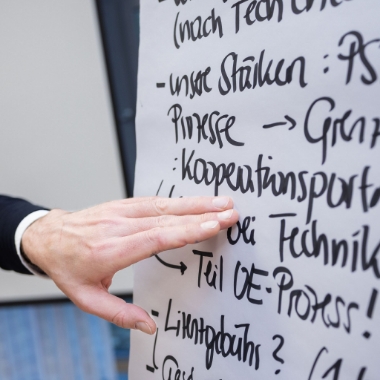 (nach Tech
- unsre Stärken : PS
Prozesse → Grenz
: Kooperationsport
bei Technik
→ Teil UE-Prozess!
- Lizentgebühs?